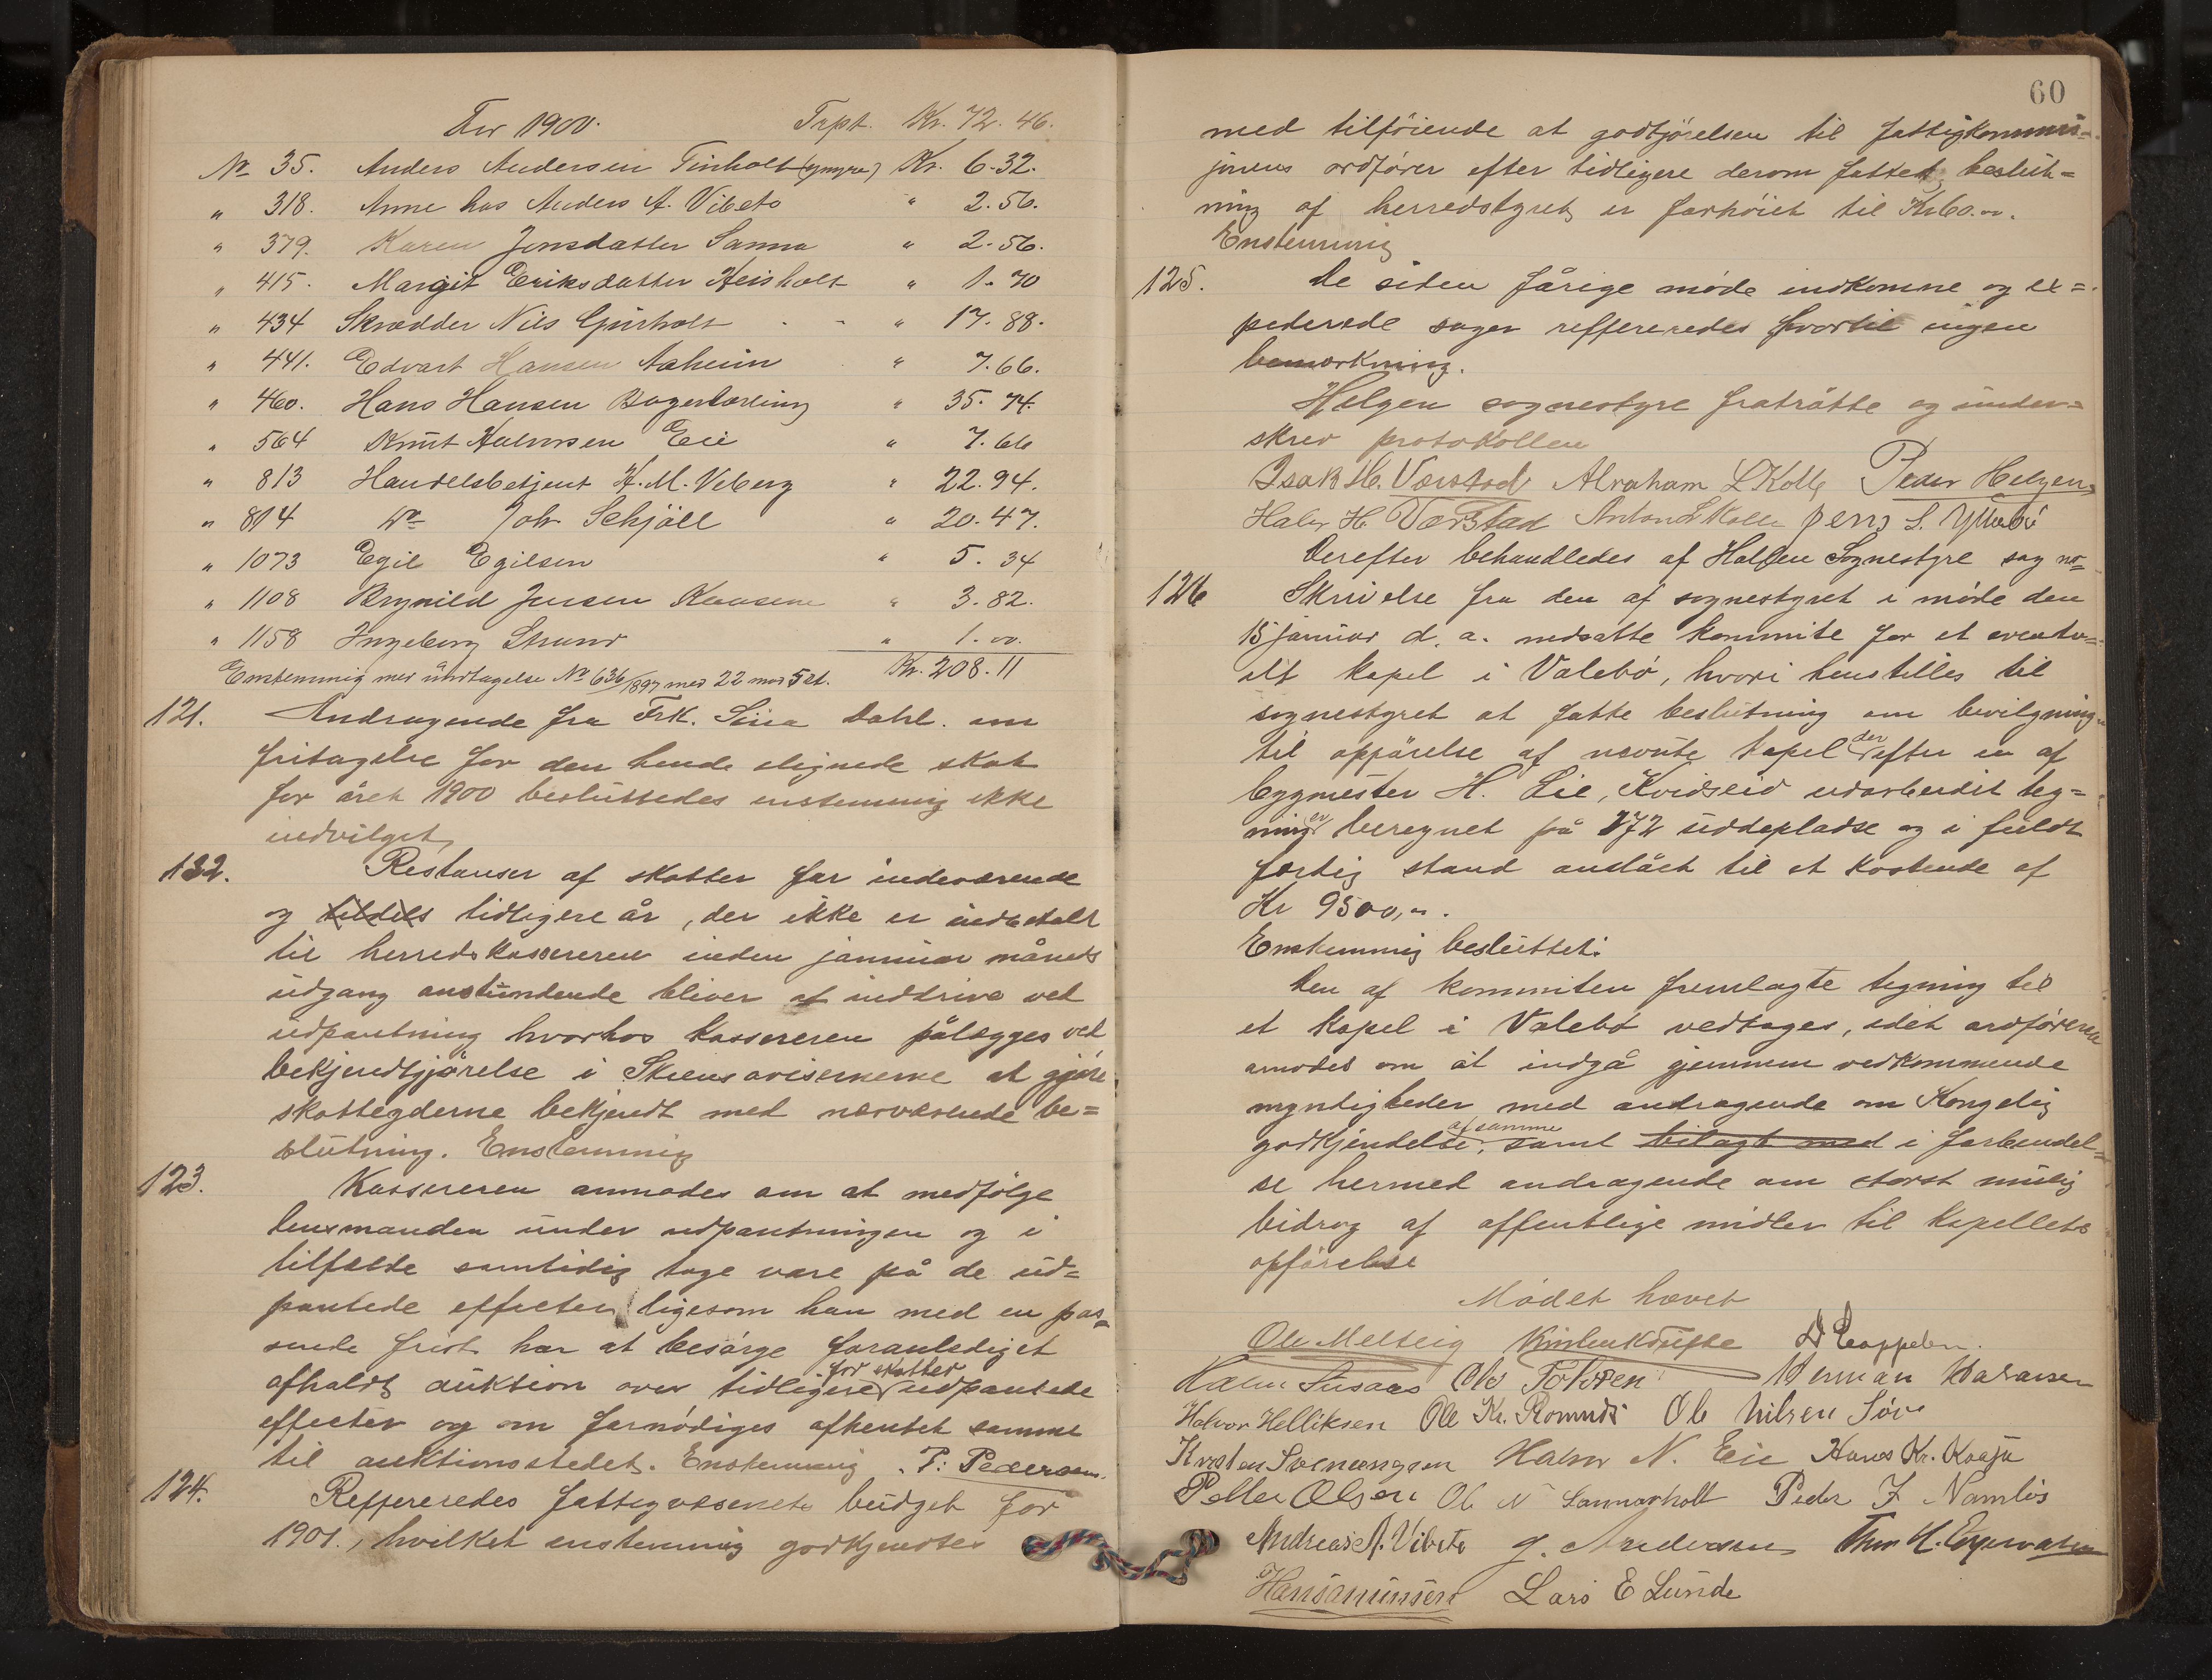 For 1900. Trpt. Kr. 72.46.
No 35. Anders Andersen Tinholt (yngre) Kr. 6.32.
" 318. Anne hos Anders A. Vibeto " 2.56.
" 379. Karen Jonsdatter Sanna " 2.56.
" 415. Margit Eriksdatter Heisholt " 1.70
" 434 Skrædder Nils Gjurholt - - " 17.88.
" 441. Edvart Hansen Aaheim " 7.66.
" 460. Hans Hansen Bagerlærling " 35.74.
" 564 Knut Halvorsen Eie " 7.66
" 813 Handelsbetjent H. M. Veberg " 22.94.
" 814 Do Joh. Schjöll " 20.47.
" 1073 Egil Egilsen " 5.34
" 1108 Brynild Jensen Kaasene " 3.82.
" 1158 Ingeborg Strund " 1.00.
Enstemmig med undtagelse No 636/1897 med 22 mod 5 st. Kr. 208.11
121. Andragende fra Frk. Dahl. om
fritagelse for den hende elignede skat
for året 1900 besluttedes enstemmig ikke
indvilget
132. Restanser af skatter for indeværende
og tildels tidligere år, der ikke er indbetalt
til herredskassereren inden januar måneds
udgang anstundende bliver at inddrive ved
udpantning hvorhos kassereren pålægges ved
bekjendtgjørelse i Skiensaviserne at gjøre
skatteyderne bekjendt med nærværende be=
slutning. Enstemmig
123. Kassereren anmodes om at medfölge
lensmanden under udpantningen og i
tilfælde samtidig tage vare på de ud=
pantede effecter ligesom han med en pas=
sende frist har at besørge foranlediget
afholdt auktion over tidligere for skatter udpantede
effecter og om fornödiges afhentet samme
til auktionsstedet. Enstemmig. P. Pedersen.
124. Reffereredes fattigvæsenets budget for
1901., hvilket enstemmig godkjendtes
60
med tilföiende at godtjörelsen til fattigkommis-
jonens ordfører efter tidligere derom fattet beslut=
ning af herredstyret er forhöiet til Kr 60.00.
Enstemmig
125. De siden forige møde indkomne og ex=
pederede sager reffereredes hvortil ingen
bemærkning.
Helgen sognestyre fratrådte og under=
skrev protokollen
Isak H. Værstad Abraham L Kolle Peder Helgen
Halv. H. Værstad Anton L Kolle Jens S. Yttebö
Derefter behandledes af Hollen Sognestyre sag no=
126 Skrivelse fra den af sognestyret i møde den
15 januar d. a. nedsatte kommite for et eventu=
elt kapel i Valebö, hvori henstilles til
sognestyret at fatte beslutning om bevilgning
til opförelse af nævnte kapel der efter en af
bygmester H. Lie, Kvidseid udarbeidet teg=
ning er beregnet på 272 siddepladse og i fuldt
færdig stand anslået til et kostende af
Kr 9500,00.
Enstemmig besluttet:
Den af kommiten fremlagte tegning til
et kapel i Valebö vedtages, idet ordföreren
anmodes om at indgå gjennem vedkommende
myndigheder med andragende om Kongelig
godkjendelse af samme, samt bilagt med i forbindel=
se hermed andragende om størst mulig
bidrag af offentlige midler til kapellets
opförelse
Mödet hævet
Ole Melteig D Cappelen.
Halvor Susaas Ole Tofsren Herman Halvorsen
Halvor Helliksen Ole Kr. Romnes Ole Nilsen Söve
Kresten Svenungsen Halvor N. Eie Hans Kr. Kaasa
Petter Olsen Ole N Sannarholt Peder J Namlös
Andreas A. Vibeto G. Andersen Thor H. Eyervatn
Hans Amundsen Lars E Lunde